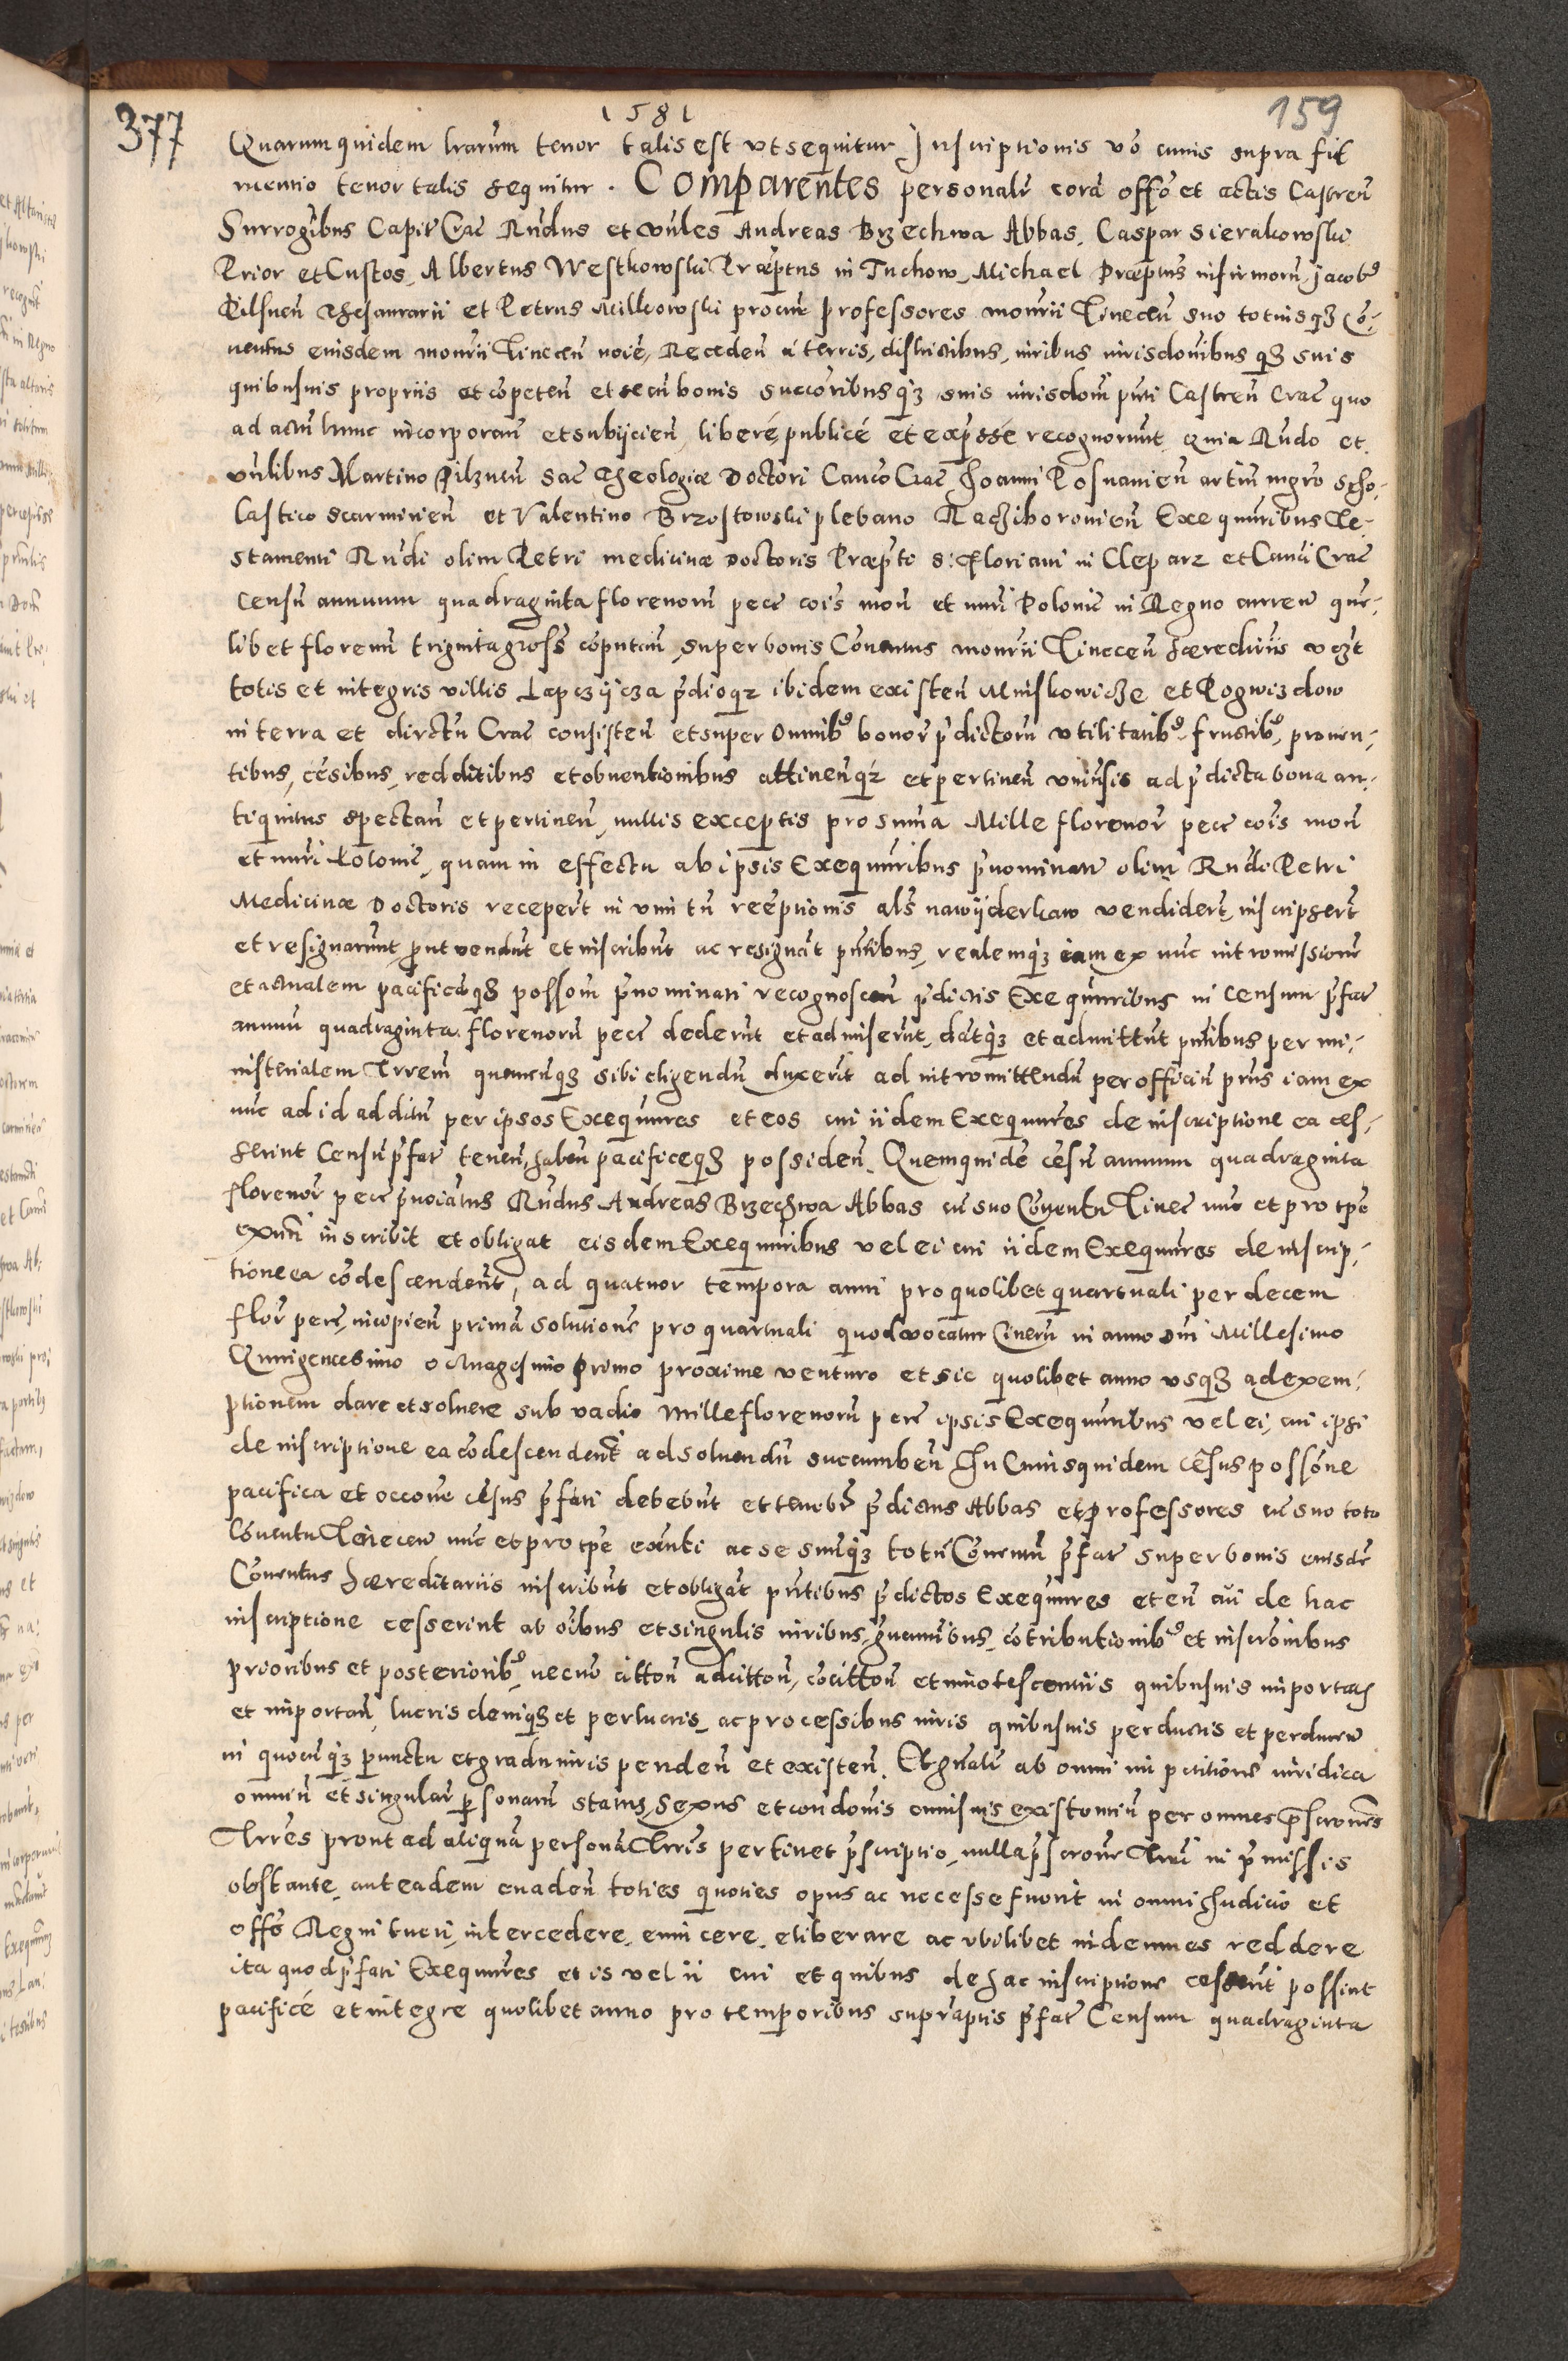 1581
377
159
Quarumquidem lrarum tenor talis est vt sequitur Inscriptionis vo cuius supra fit
mentio tenor talis sequitur. Comparentes personalr cora offo et actis Castren
Surrogibus Capit Crac Rndus et vnles Andreas Brzechwa Abbas, Caspar Sierakowski
Prior et Custos, Albertus Westkowski Præptus in Tuchow, Michael Præptus infirmoru, Jacobus
Pilsnen Thesaurarii et Petrus Milkowski procur professores monrii Tinecen suo totiusqz Co-
nentus eiusdem monrii Tinecen noie, Receden a terris, districtibus, iuribus iurisdonibusqz suis
quibusuis propriis et copeten et se cu bonis succoribusqz suis iurisdoni pnti Castren Crac quo
ad actu hunc incorporan et subijcien, liberé, publicé et expssé recognouerunt quia Rndo et
vnlibus Martino Pilznen Sac Theologiæ Doctori Canco Crac Joanni Posnanien artiu mgro Scho-
lastico Scarmirien et Valentino Brzostowski plebano Racziboronien Exequuribus Te-
stamenti Rndi olim Petri medicinæ Doctoris Præpti S: Floriani in Cleparz et Canci Crac
Censu annuum quadraginta florenoru pece cois mon et nuri Polonic in Regno curren que-
libet florenu triginta gross coputan, super bonis Conentus monrii Tinecen hæreditriis vczt
totis et integris villis Lapczijcza pdioqz ibidem existen Mniskowicze et Pogwizdow
in terra et dirctu Crac consisten et super omnibus bonor pdictoru vtilitatibus, fructibus, prouen-
tibus, cesibus, redditibus et obuentionibus attinenqz et pertinen vniusis ad pdicta bona an-
tiquitus spectan et pertinen, nullis exceptis pro suma Mille florenor pece cois mon
et nuri Polonic, quam in effectu ab ipsis Exequuribus pnominatis olim Rndi Petri
Medicinæ Doctoris recepert in vim tn reeptionis als nawijderkaw vendidert, inscripsert
et resignarunt, put vendut et inscribut ac resignat pntibus, realemqz iam ex nuc intromissione
et actualem pacificaqz possom pnominati recognoscen pdictis Exequuribus in censum pfat
annuu quadraginta florenoru pece dederut et admiserut, datqz et admittut pntibus per mi-
nisterialem Trrem quemcuqz sibi eligendu duxerit ad intromittendu per officiu prns iam ex
nuc ad id additu per ipsos Exequures et eos cui iidem Exequures de inscriptione ea ces-
serint Censu pfat tenen, haben pacificeqz possiden. Quemquide cesu annuum quadraginta
florenor pece pnoiatus Rndus Andreas Brzechwa Abbas cu suo Conentu Tinec nuc et pro tpe
exnti inscribit et obligat eisdem Exequuribus vel ei cui iidem Exequures de inscrip-
tione ea codescendent, ad quatuor tempora anni pro quolibet quartuali per decem
flor pece, incipien prima solutione pro quartuali quod vocatur Cineru in anno dni Millesimo
Quingentesimo octuagesimo primo proxime venturo et sic quolibet anno vsqz ad exem-
ptionem dare et soluere sub vadio mille florenoru pece ipsis Exequuribus vel ei, cui ipsi
de inscriptione ea codescendent ad soluendu succumben In Cuiusquidem cesus possone
pacifica et occone cesus pfati debebut et tenebr pdictus Abbas et professores cu suo toto
Conentu Tinecen nuc et pro tpe exnti ac se suuqz totu Conentu pfat super bonis eiusde
Conentus hæreditariis inscribut et obligat pntibus pdictos Exequures et eu cui de hac
inscriptione cesserint ab oibus et singulis iuribus, grauaminibus, cotributionibus et inscronibus
prioribus et posterioribus, necno citton adcitton, cocitton et innotescentiis quibusuis importatis
et importan, lucris deniqz et perlucris, ac processibus iuris quibusuis perductis et perducen
in quocuqz puncto et gradu iuris penden et existen. Et gnalr ab omni impetitione iuridica
omniu et singular psonaru status, sexus et condonis cuiusuis existentiu per omnes pscrones
Trres prout ad aliqua persona Trris pertinet pscriptio, nulla pscrone Trri in pmissis
obstante, aut eadem euaden toties quoties opus ac necesse fuerit in omni Judicio et
offo Regni tueri, intercedere, euincere, eliberare ac vbilibet indemnes reddere
ita quod pfati Exequures et is vel ii cui et quibus de hac inscriptione cesserit possint
pacificé et integre quolibet anno pro temporibus suprapriis pfat Censum quadraginta